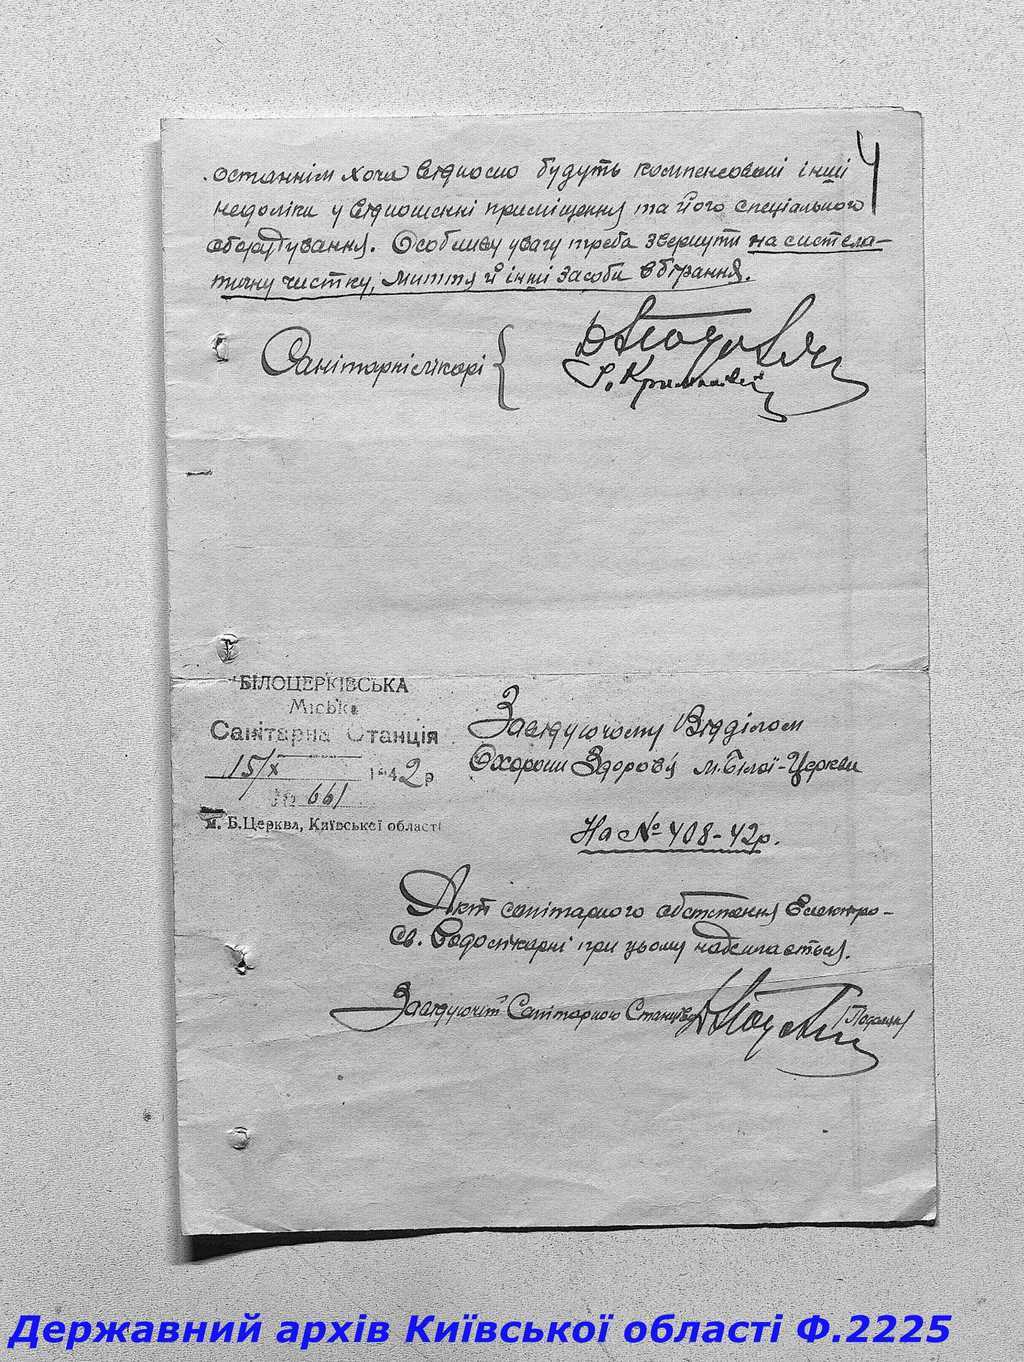 4
останнім хоча відносно будуть компенсовані інші
недоліки у відношенні приміщення та його спеціального
оборудування. Особливу увагу треба звернути на система-
тичну чистку, миття й інші засоби вбірання.
Санітарні лікарі
БІЛОЦЕРКІВСЬКА
Міська
Санітарна Станція
15/X 1942 р
№ 661
м. Б.Церква, Київської області
Завідуючому Відділом
Охорони Здоров'я м. Білої-Церкви
На № 408-42р.
Акт санітарного обстеження Електро-
св. Водолікарні при цьому надсилається.
Завідуючий Санітарною Станцією
Державний архів Київської області Ф.2225